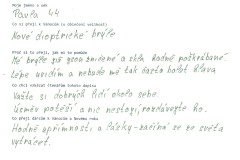 Moje jméno a věk
Pavla 44
Co si přeji k Vánocům (a oblečení velikost)
Nové dioptrické brýle
Proč si to přeji, jak mi to pomůže
Mé brýle již jsou zničené a skla hodně poškrábané.
Lépe uvidím a nebude mě tak často bolet hlava
Co chci vzkázat čtenářům tohoto dopisu
Važte si dobrých lidí okolo sebe.
Úsměv potěší a nic nestojí, rozdávejte ho.
Co přeji dárcům k Vánocům a Novému roku
Hodně upřímnosti a lásky - začíná se ze světa
vytrácet.